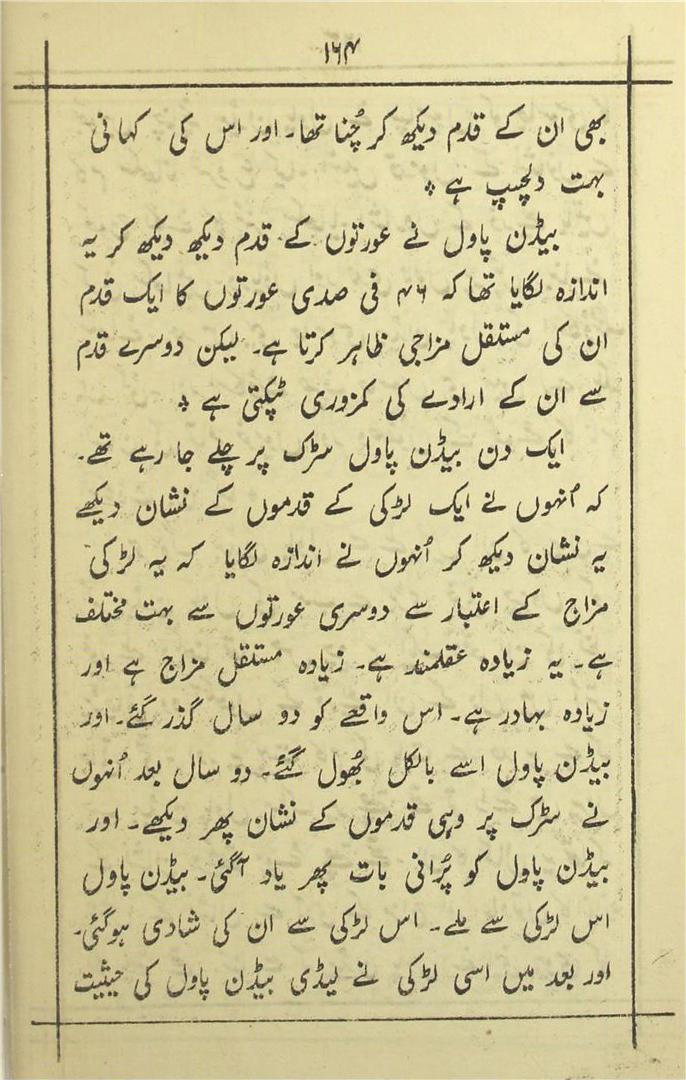 ۱۶۴
بھی ان کے قدم دیکھ کر چُنا تھا۔ اور اس کی کہانی
بہت دلچسپ ہے ٭
بیڈن پاول نے عورتوں کے قدم دیکھ دیکھ کر یہ
اندازہ لگایا تھا کہ ۴۶ فی صدی عورتوں کا ایک قدم
ان کی مستقل مزاجی ظاہر کرتا ہے۔ لیکن دوسرے قدم
سے ان کے ارادے کی کمزوری ٹپکتی ہے ٭
ایک دن بیڈن پاول سڑک پر چلے جا رہے تھے۔
کہ اُنہوں نے ایک لڑکی کے قدموں کے نشان دیکھے
یہ نشان دیکھ کر اُنہوں نے اندازہ لگایا کہ یہ لڑکی
مزاج کے اعتبار سے دوسری عورتوں سے بہت مختلف
ہے۔ یہ زیادہ عقلمند ہے۔ زیادہ مستقل مزاج ہے اور
زیادہ بہادر ہے۔ اس واقعے کو دو سال گذر گئے۔ اور
بیڈن پاول اسے بالکل بُھول گئے۔ دو سال بعد اُنہوں
نے سڑک پر وہی قدموں کے نشان پھر دیکھے۔ اور
بیڈن پاول کو پُرانی بات پھر یاد آگئی۔ بیڈن پاول
اس لڑکی سے ملے۔ اس لڑکی سے ان کی شادی ہوگئی۔
اور بعد میں اسی لڑکی نے لیڈی بیڈن پاول کی حیثیت